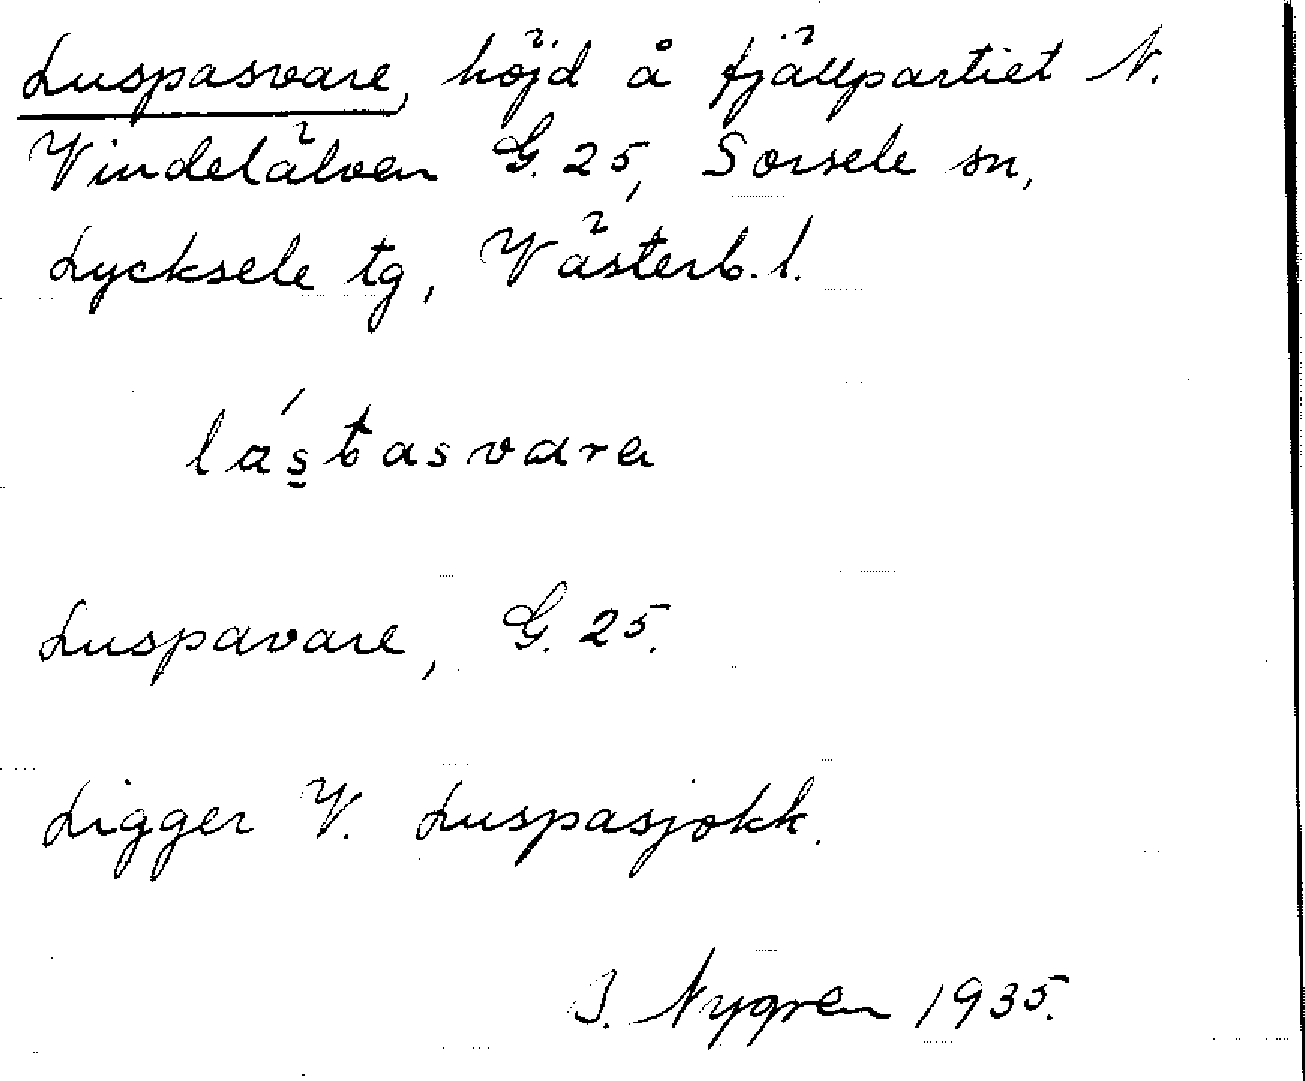 Luspasvare, höjd å fjällpartiet N.
Vindelälven G. 25, Sorsele sn,
Lycksele tg, Västerb. l.
Luspavare, G. 25.
Ligger V. Luspasjokk.
J. Nygren 1935.